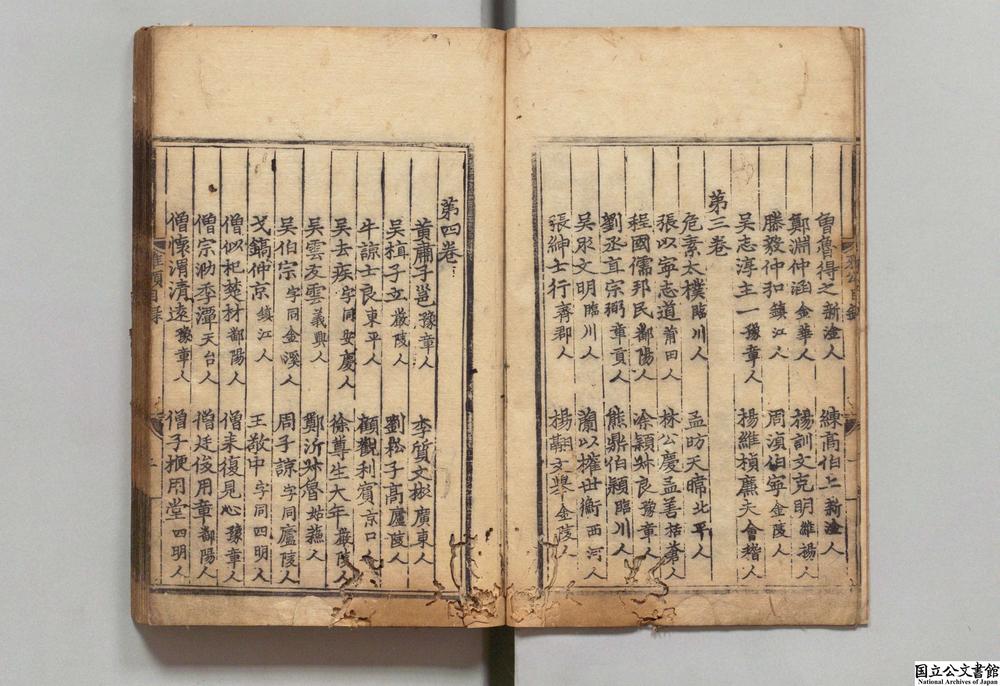 曾魯得之新淦人 練高伯上新淦人
鄭淵仲涵金華人 楊訓文克明維揚人
滕毅仲和鎮江人 周湞伯寧金陵人
吳志淳主一豫章人 楊維楨廉夫會稽人
第三卷
危素太樸臨川人 孟昉天暐北平人
張以寧志道莆田人 林公慶孟善括蒼人
程國儒邦民鄱陽人 涂穎叔良豫章人
劉丞直宗弼章貢人 熊鼎伯穎臨川人
吳彤文明臨川人 藺以權世衡西河人
張紳士行齊郡人 楊翮文舉金陵人
第四卷
黃肅子邕豫章人 李質文彬廣東人
吳植子立嚴陵人 劉松子高廬陵人
牛諒士良東平人 顧觀利賓京口人
吳去疾字同安慶人 徐尊生大年嚴陵人
吳雲友雲義興人 鄭沂叔魯姑蘇人
吳伯宗字同金溪人 周子諒字同廬陵人
戈鎬仲京鎮江人 王敬中字同四明人
僧似杞楚材鄱陽人 僧来復見心豫章人
僧宗泐季潭天台人 僧廷俊用章鄱陽人
僧懷渭清遠豫章人 僧子楩用堂四明人
国立公文書館
National Archives of Japan